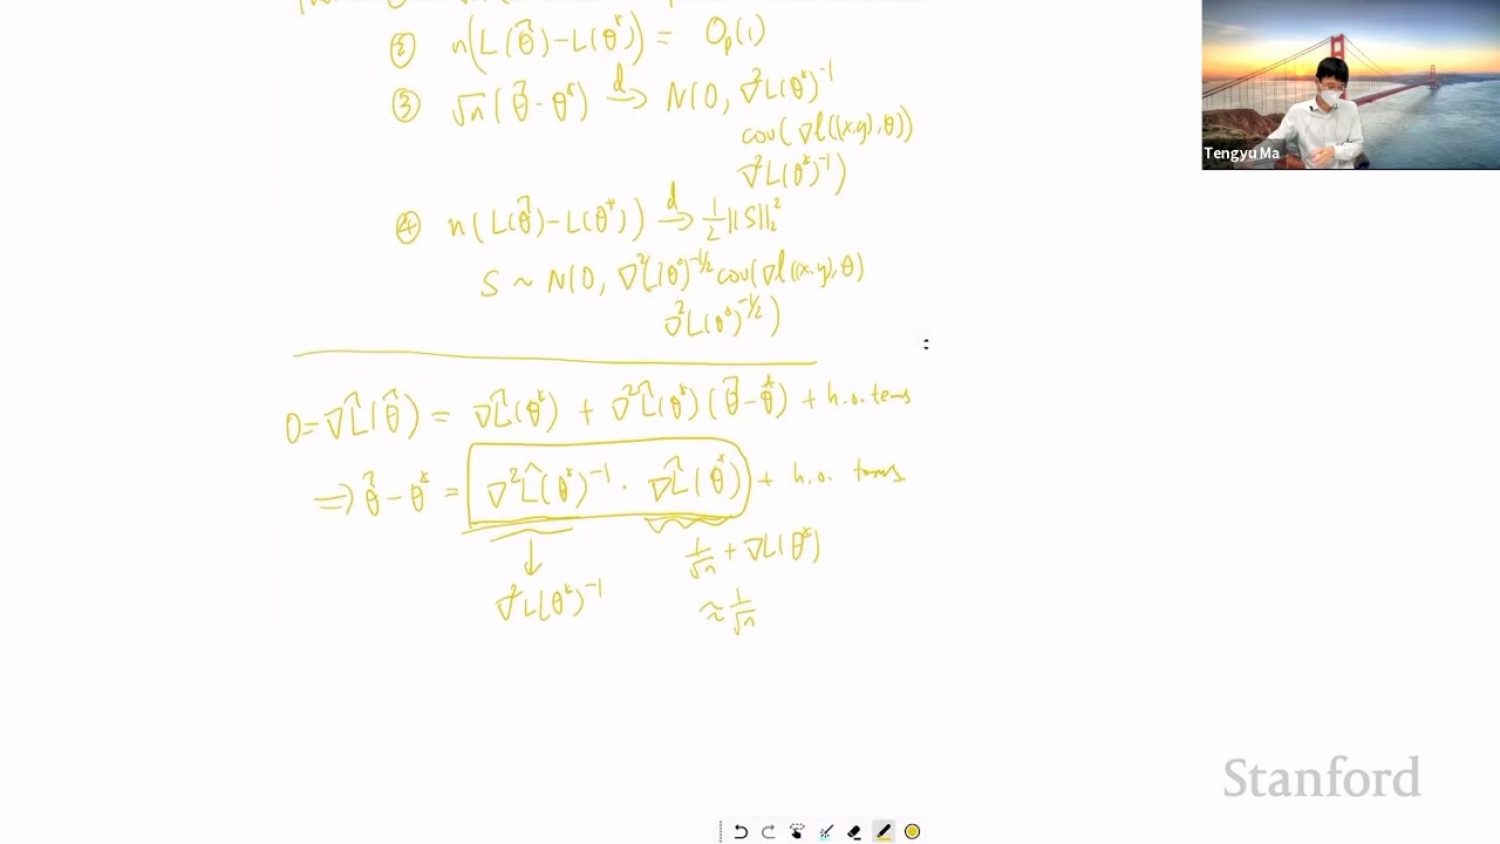 ② n(L(θ̂)-L(θ*)) = Oₚ(1)
③ √n(θ̂-θ*) →ᵈ N(0, ∇²L(θ*)⁻¹
cov(∇l((x,y),θ))
∇²L(θ*)⁻¹)
④ n(L(θ̂)-L(θ*)) →ᵈ 1/2||S||₂²
S ~ N(0, ∇²L(θ*)^-1/2 cov(∇l((x,y),θ)
∇²L(θ*)^-1/2)
0=∇L̂(θ̂) = ∇L̂(θ*) + ∇²L̂(θ*)(θ̂-θ*) + h.o. tems
⇒ θ̂-θ* = ∇²L̂(θ*)⁻¹ · ∇L̂(θ*) + h.o. terms
1/√n + ∇L(θ*)
↓
∇²L(θ*)⁻¹
≈ 1/√n
Tengyu Ma
Stanford